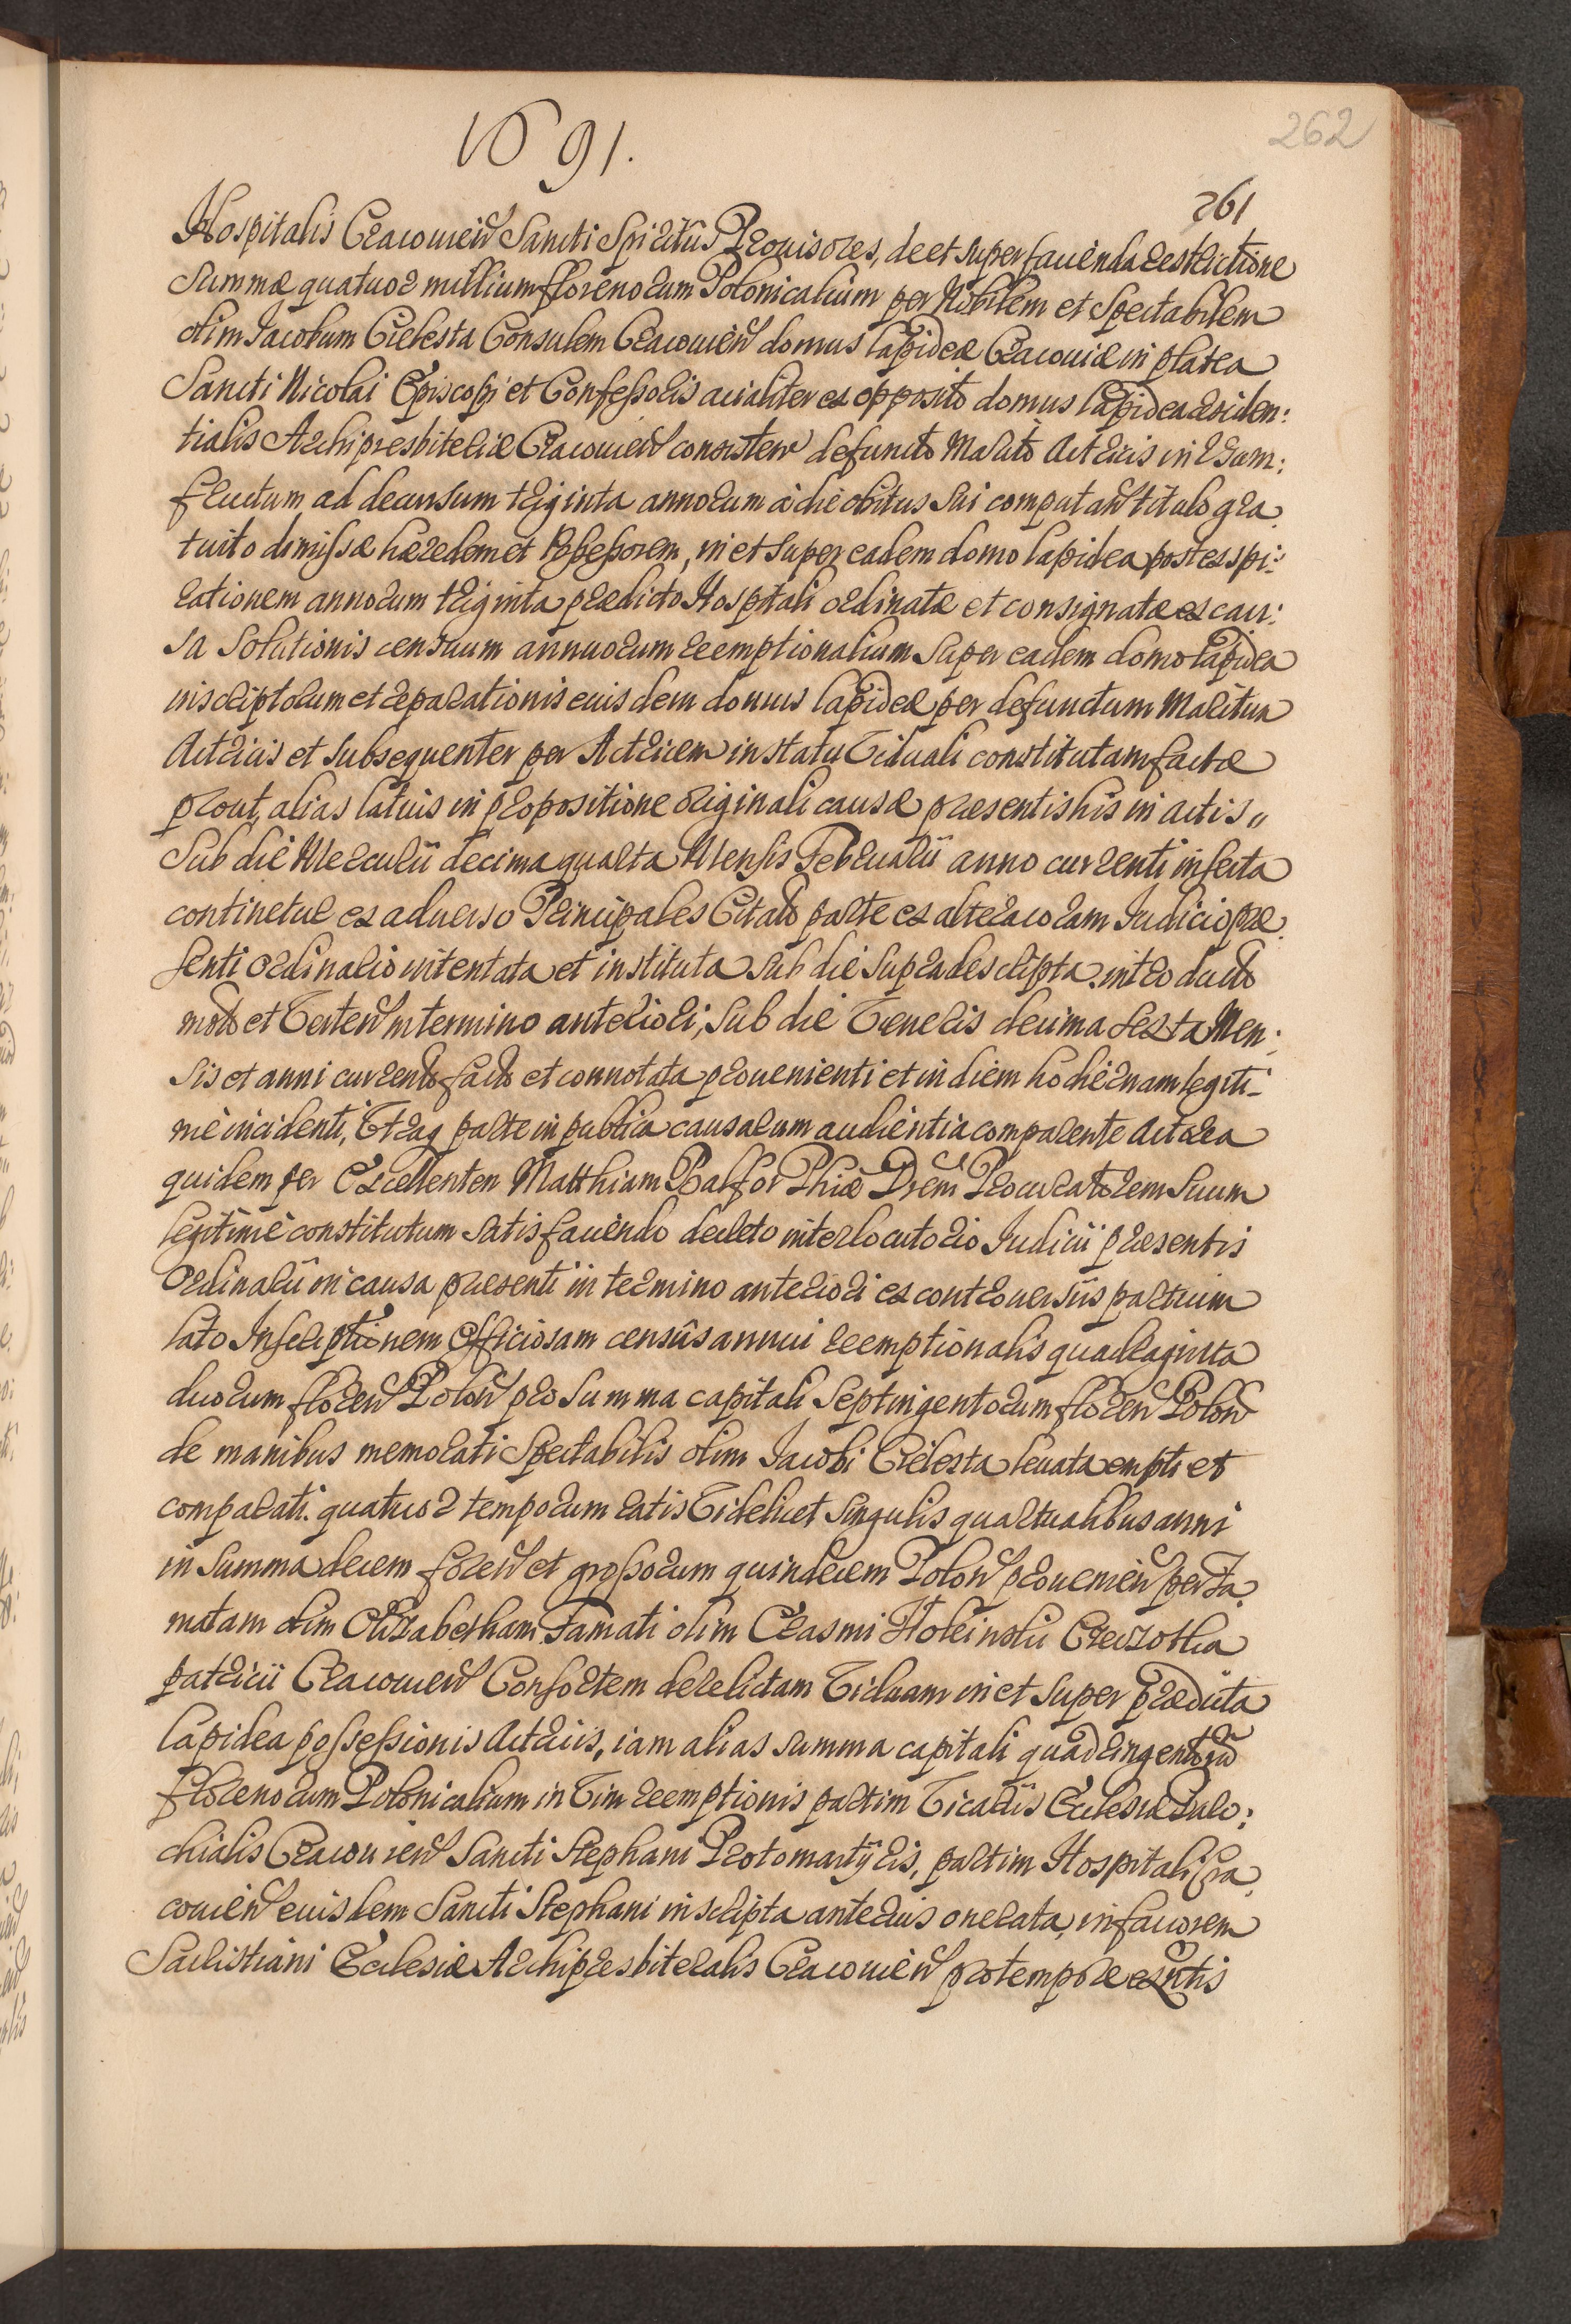 1691.
262
261
Hospitalis Cracovien Sancti Spiritûs Provisores, de et super facienda restrictione
Summæ quatuor millium florenorum Polonicalium per Nobilem et Spectabilem
olim Jacobum Cielesta Consulem Cracovien domus lapideæ Cracoviæ in platea
Sancti Nicolai Episcopi et Confessoris acialiter ex opposito domus lapideæ residen:
tialis Archipresbiteriæ Cracovien consisten defuncto Marito Actricis in usum:
fructum, ad decursum triginta annorum à die obitus sui computan titulo gra
tuito dimissæ hæredem et Possessorem, in et super eadem domo lapidea post expi:
rationem annorum triginta prædicto Hospitali ordinatæ et consignatæ ex cau:
sa Solutionis censuum annuorum reemptionalium super eadem domo lapidea
inscriptorum et reparationis eiusdem domus lapideæ per defunctum Maritum
Actricis et subsequenter per Actricem in statu Viduali constitutam factæ
prout, alias latius in propositione originali causæ præsentis his in actis
Sub die Mercurii decima quarta Mensis Februarii anno currenti inserta
continetur ex adverso Principales Citato parte ex altera coram Iudicio præ
senti ordinario intentata et instituta sub die supradescripta introducto
moto et Verten in termino anteriori, sub die Veneris decima sexta Men:
sis et anni currento facto et connotata provenienti et in diem hodiernam legiti-
mè incidenti, Utraq parte in publica causarum audientia comparente Actrea
quidem per Excellentem Matthiam Balfor Phiæ Drem Procuratorem suum
legitimè constitutum satisfaciendo decreto interlocutorio Iudicii præsentis
Ordinarii in causa præsenti in termino anteriori ex controversiis partium
lato Inscriptionem Officiosam censûs annui reemptionalis quadraginta
duorum floren Polon pro summa capitali Septingentorum floren Polon
de manibus memorati Spectabilis olim Jacobi Cielesta levata empti et
comparati. quatuor temporum ratis Videlicet Singulis quartualibus anni
in summa decem floren et grossorum quindecem Polon provenien per Fa
matam olim Elizabetham Famati olim Erasmi
patricii Cracovien Consortem derelictam Viduam in et super prædicta
lapidea possessionis Actricis, iam alias summa capitali quadringentorū
florenorum Polonicalium in Vim reemptionis partim Vicariis Ecclesiæ Paro:
chialis Cracovien Sancti Stephani Protomartyris, partim Hospitali Cra
covien eiusdem Sancti Stephani inscripta anterius onerata, in favorem
Sacristiani Ecclesiæ Archipresbiteralis Cracovien pro tempore exñtis